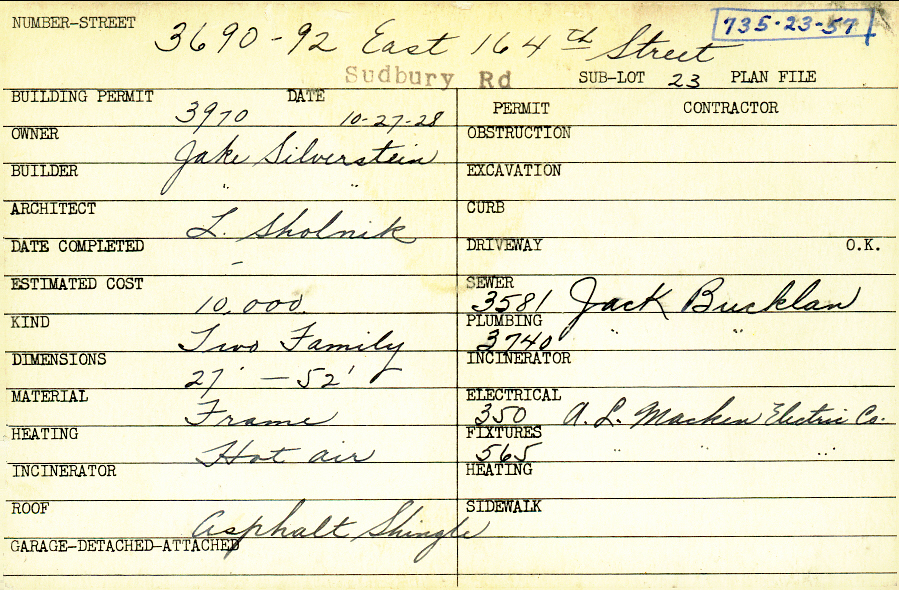 NUMBER-STREET 3690-92 East 164th Street 735-23-57
Sudbury Rd SUB-LOT 23 PLAN FILE
BUILDING PERMIT 3970 DATE 10-27-28
PERMIT CONTRACTOR
OWNER Jake Silverstein
OBSTRUCTION
BUILDER " "
EXCAVATION
ARCHITECT L. Sholnik
CURB
DATE COMPLETED -
DRIVEWAY O.K.
ESTIMATED COST 10,000.
SEWER 3581 Jack Bucklan
KIND Two Family
PLUMBING 3740 " "
DIMENSIONS 27' - 52'
INCINERATOR
MATERIAL Frame
ELECTRICAL 350 A. L. Macken Electric Co.
HEATING Hot air
FIXTURES 565 " " "
INCINERATOR
HEATING
ROOF Asphalt Shingle
SIDEWALK
GARAGE-DETACHED-ATTACHED